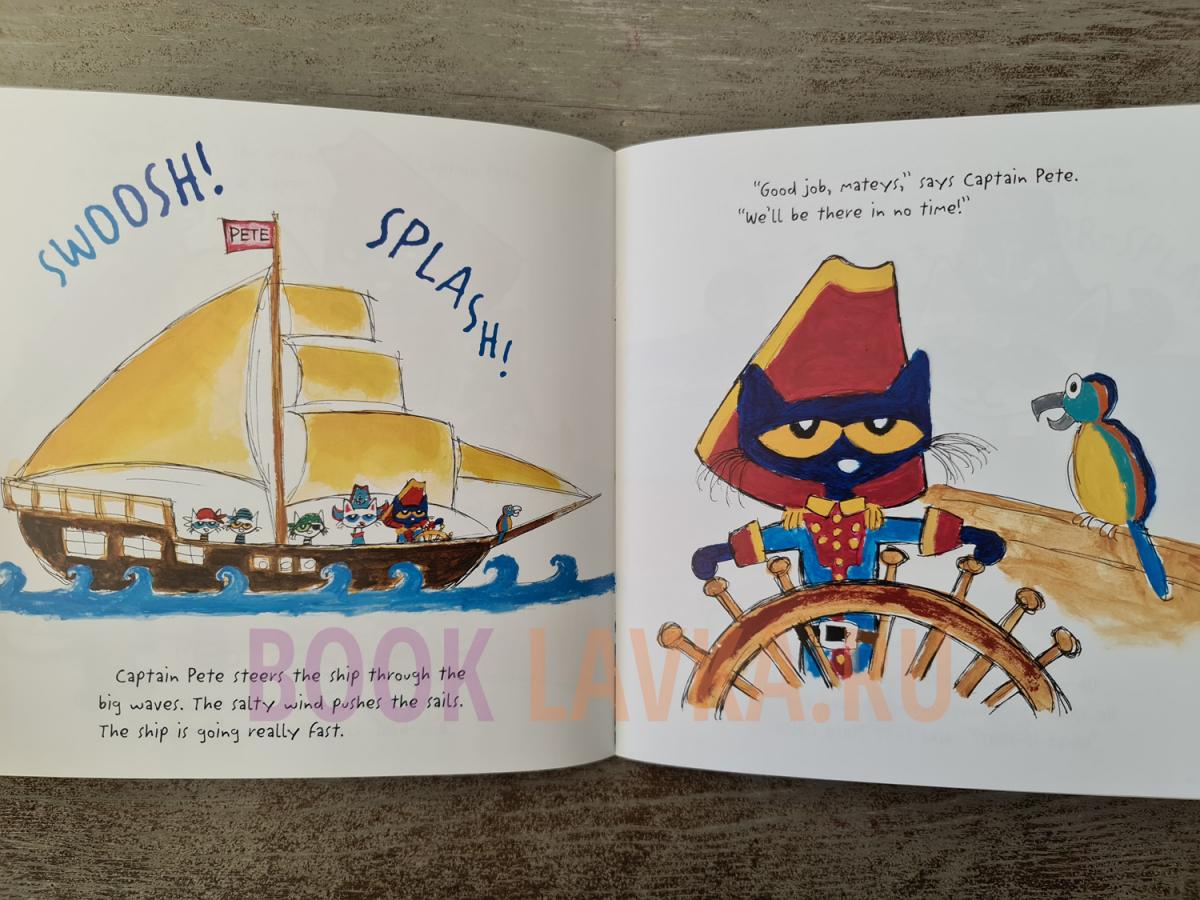 SWOOSH!
PETE
SPLASH!
Captain Pete steers the ship through the
big waves. The salty wind pushes the sails.
The ship is going really fast.
"Good job, mateys," says Captain Pete.
"We'll be there in no time!"
BOOK LAVKA.RU